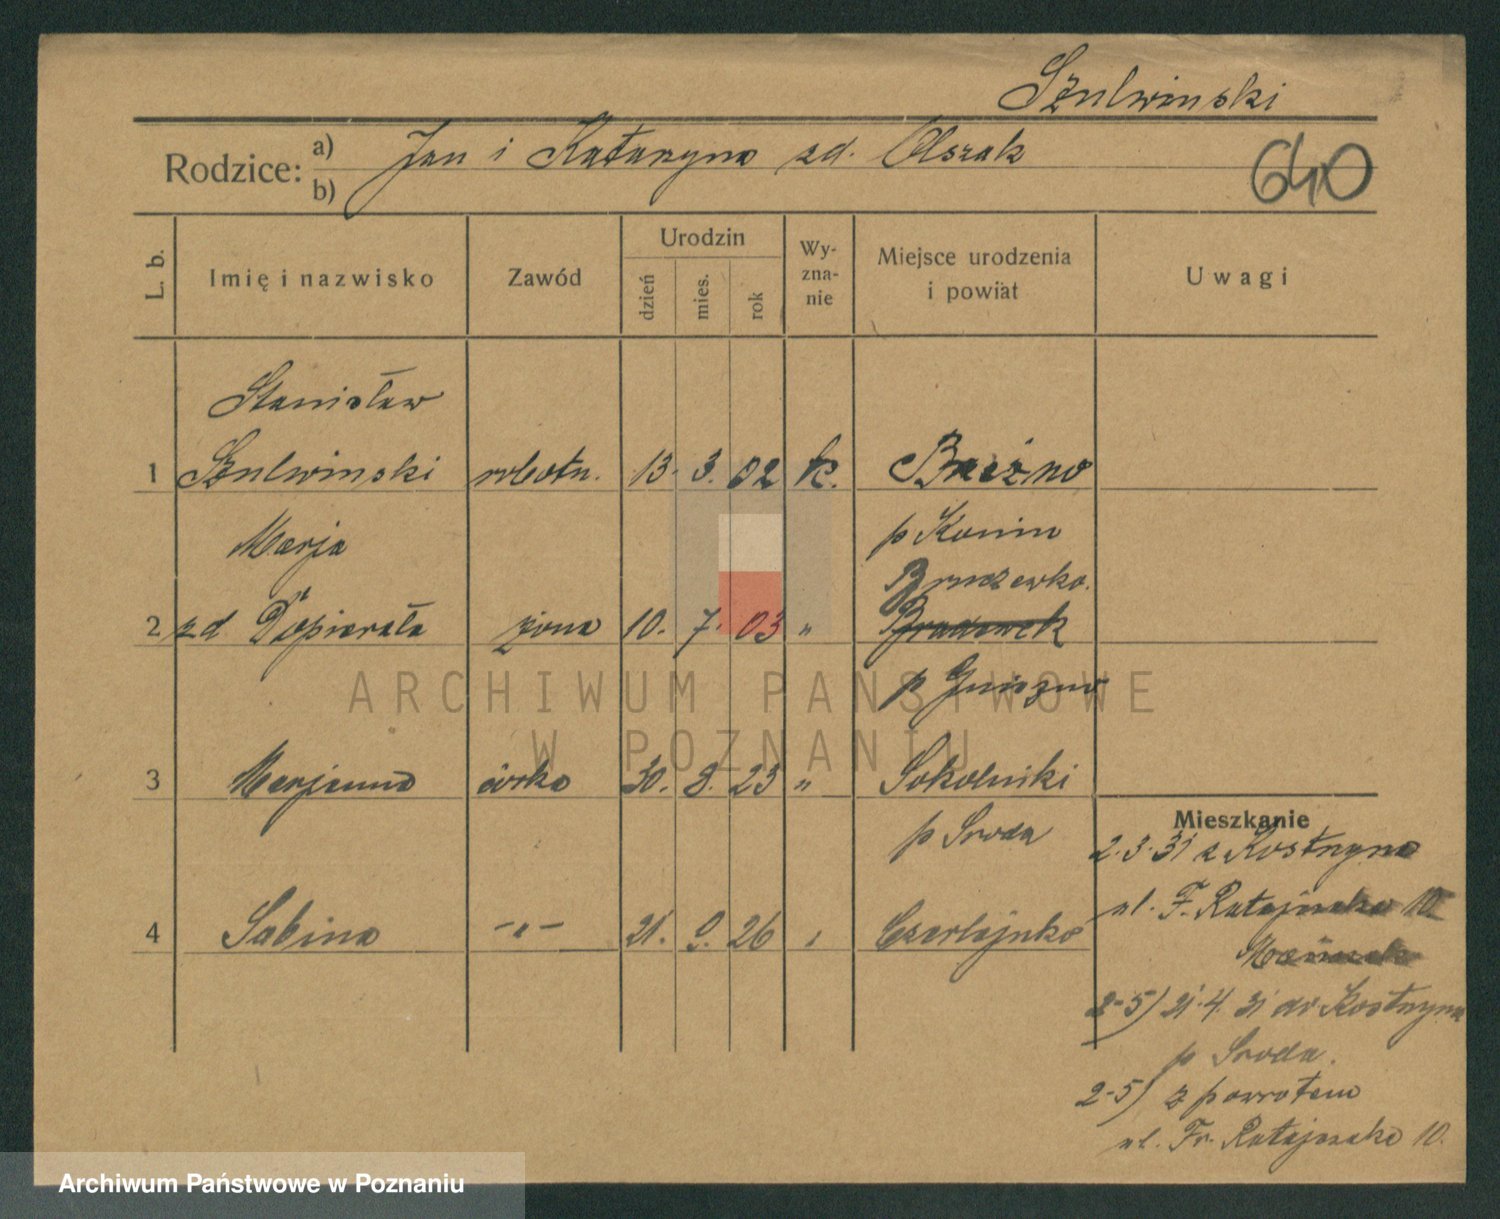 Szulwinski
Rodzice: a) Jan i Katarzyna zd. Olszak
b)
640
L. b.
Imię i nazwisko
Zawód
Urodzin
dzień
mies.
rok
Wy-
zna-
nie
Miejsce urodzenia
i powiat
Uwagi
Stanisław
1 Szulwinski robotn. 13. 3. 02 k. Brzeźno
Marja p Konin
Bruszewko.
2 zd Dopierała żona 10. 7. 03 "
p Gniezno
3 Marjanna córka 30. 8. 23 " Sokolniki
p Sroda
4 Sabina -"- 21. 9. 26 " Czerlejnko
Mieszkanie
2.3.31 z Kostrzyna
ul. F. Ratajczaka 10.
2-5) 21.4.31 do Kostrzyna
p Sroda.
2-5) z powrotem
ul. Fr. Ratajczaka 10.
ARCHIWUM PAŃSTWOWE
W POZNANIU
Archiwum Państwowe w Poznaniu